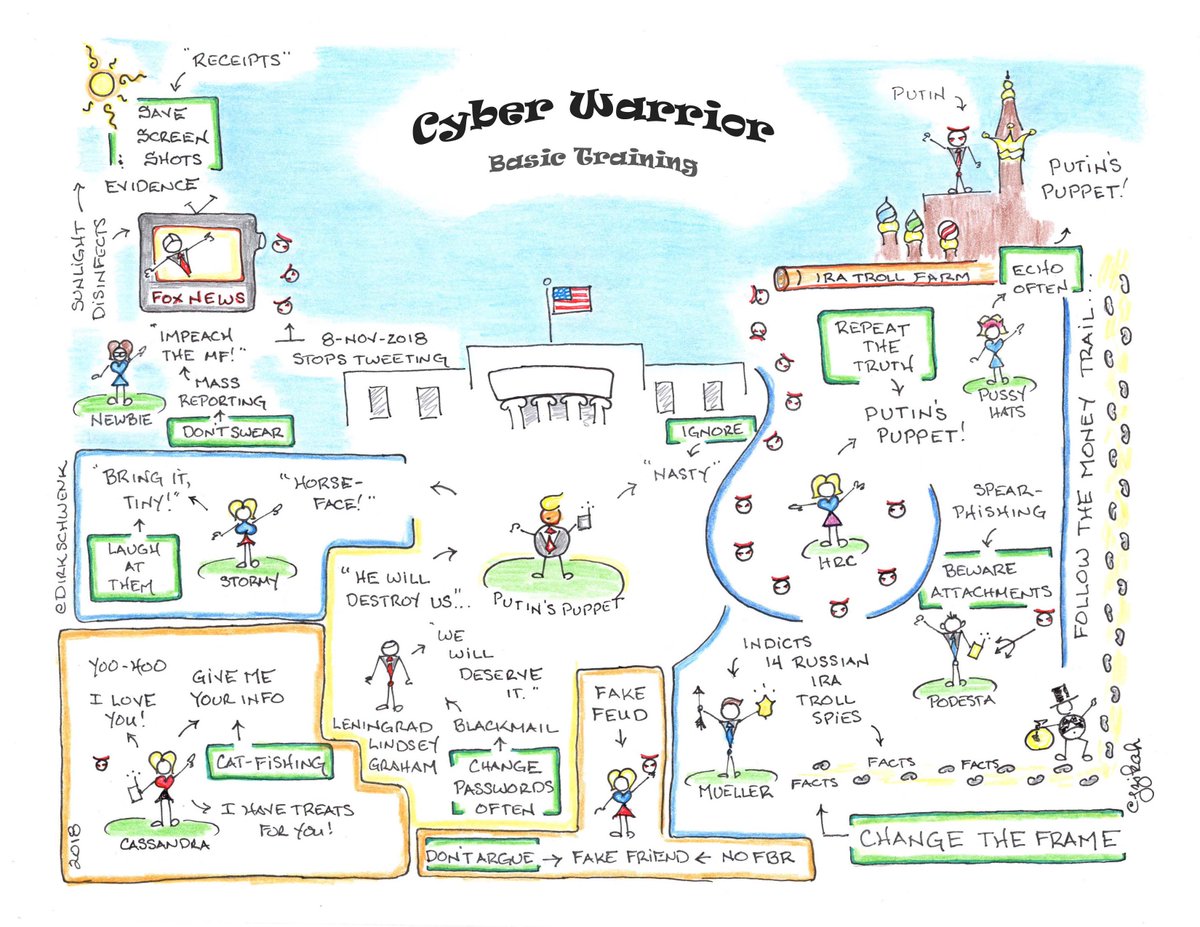 Cyber Warrior
Basic Training
"RECEIPTS"
SAVE
SCREEN
SHOTS
EVIDENCE
SUNLIGHT
DISINFECTS
FOX NEWS
8-NOV-2018
STOPS TWEETING
"IMPEACH
THE MF!"
MASS
REPORTING
NEWBIE
DON'T SWEAR
PUTIN
PUTIN'S
PUPPET!
IRA TROLL FARM
ECHO
OFTEN
REPEAT
THE
TRUTH
PUSSY
HATS
PUTIN'S
PUPPET!
HRC
FOLLOW THE MONEY TRAIL...
IGNORE
"NASTY"
@DIRKSCHWENK
"BRING IT,
TINY!"
"HORSE-
FACE!"
LAUGH
AT
THEM
STORMY
PUTIN'S PUPPET
"HE WILL
DESTROY US"...
"WE
WILL
DESERVE
IT."
LENINGRAD
LINDSEY
GRAHAM
BLACKMAIL
CHANGE
PASSWORDS
OFTEN
SPEAR-
PHISHING
BEWARE
ATTACHMENTS
PODESTA
INDICTS
14 RUSSIAN
IRA
TROLL
SPIES
MUELLER
FACTS
FACTS
FACTS
YOO-HOO
I LOVE
YOU!
GIVE ME
YOUR INFO
CAT-FISHING
I HAVE TREATS
FOR YOU!
CASSANDRA
2018
FAKE
FEUD
DON'T ARGUE
FAKE FRIEND
NO FBR
CHANGE THE FRAME